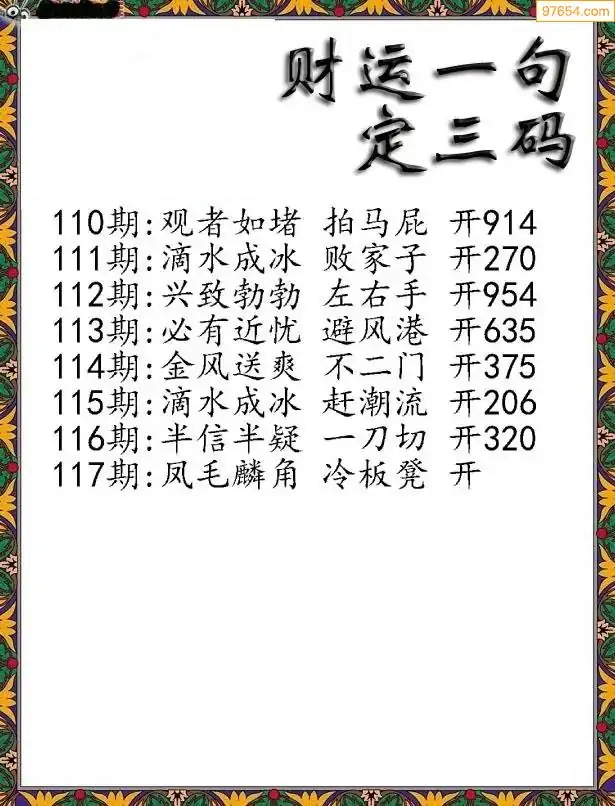 97654.com
财运一句
定三码
110期:观者如堵 拍马屁 开914
111期:滴水成冰 败家子 开270
112期:兴致勃勃 左右手 开954
113期:必有近忧 避风港 开635
114期:金风送爽 不二门 开375
115期:滴水成冰 赶潮流 开206
116期:半信半疑 一刀切 开320
117期:凤毛麟角 冷板凳 开